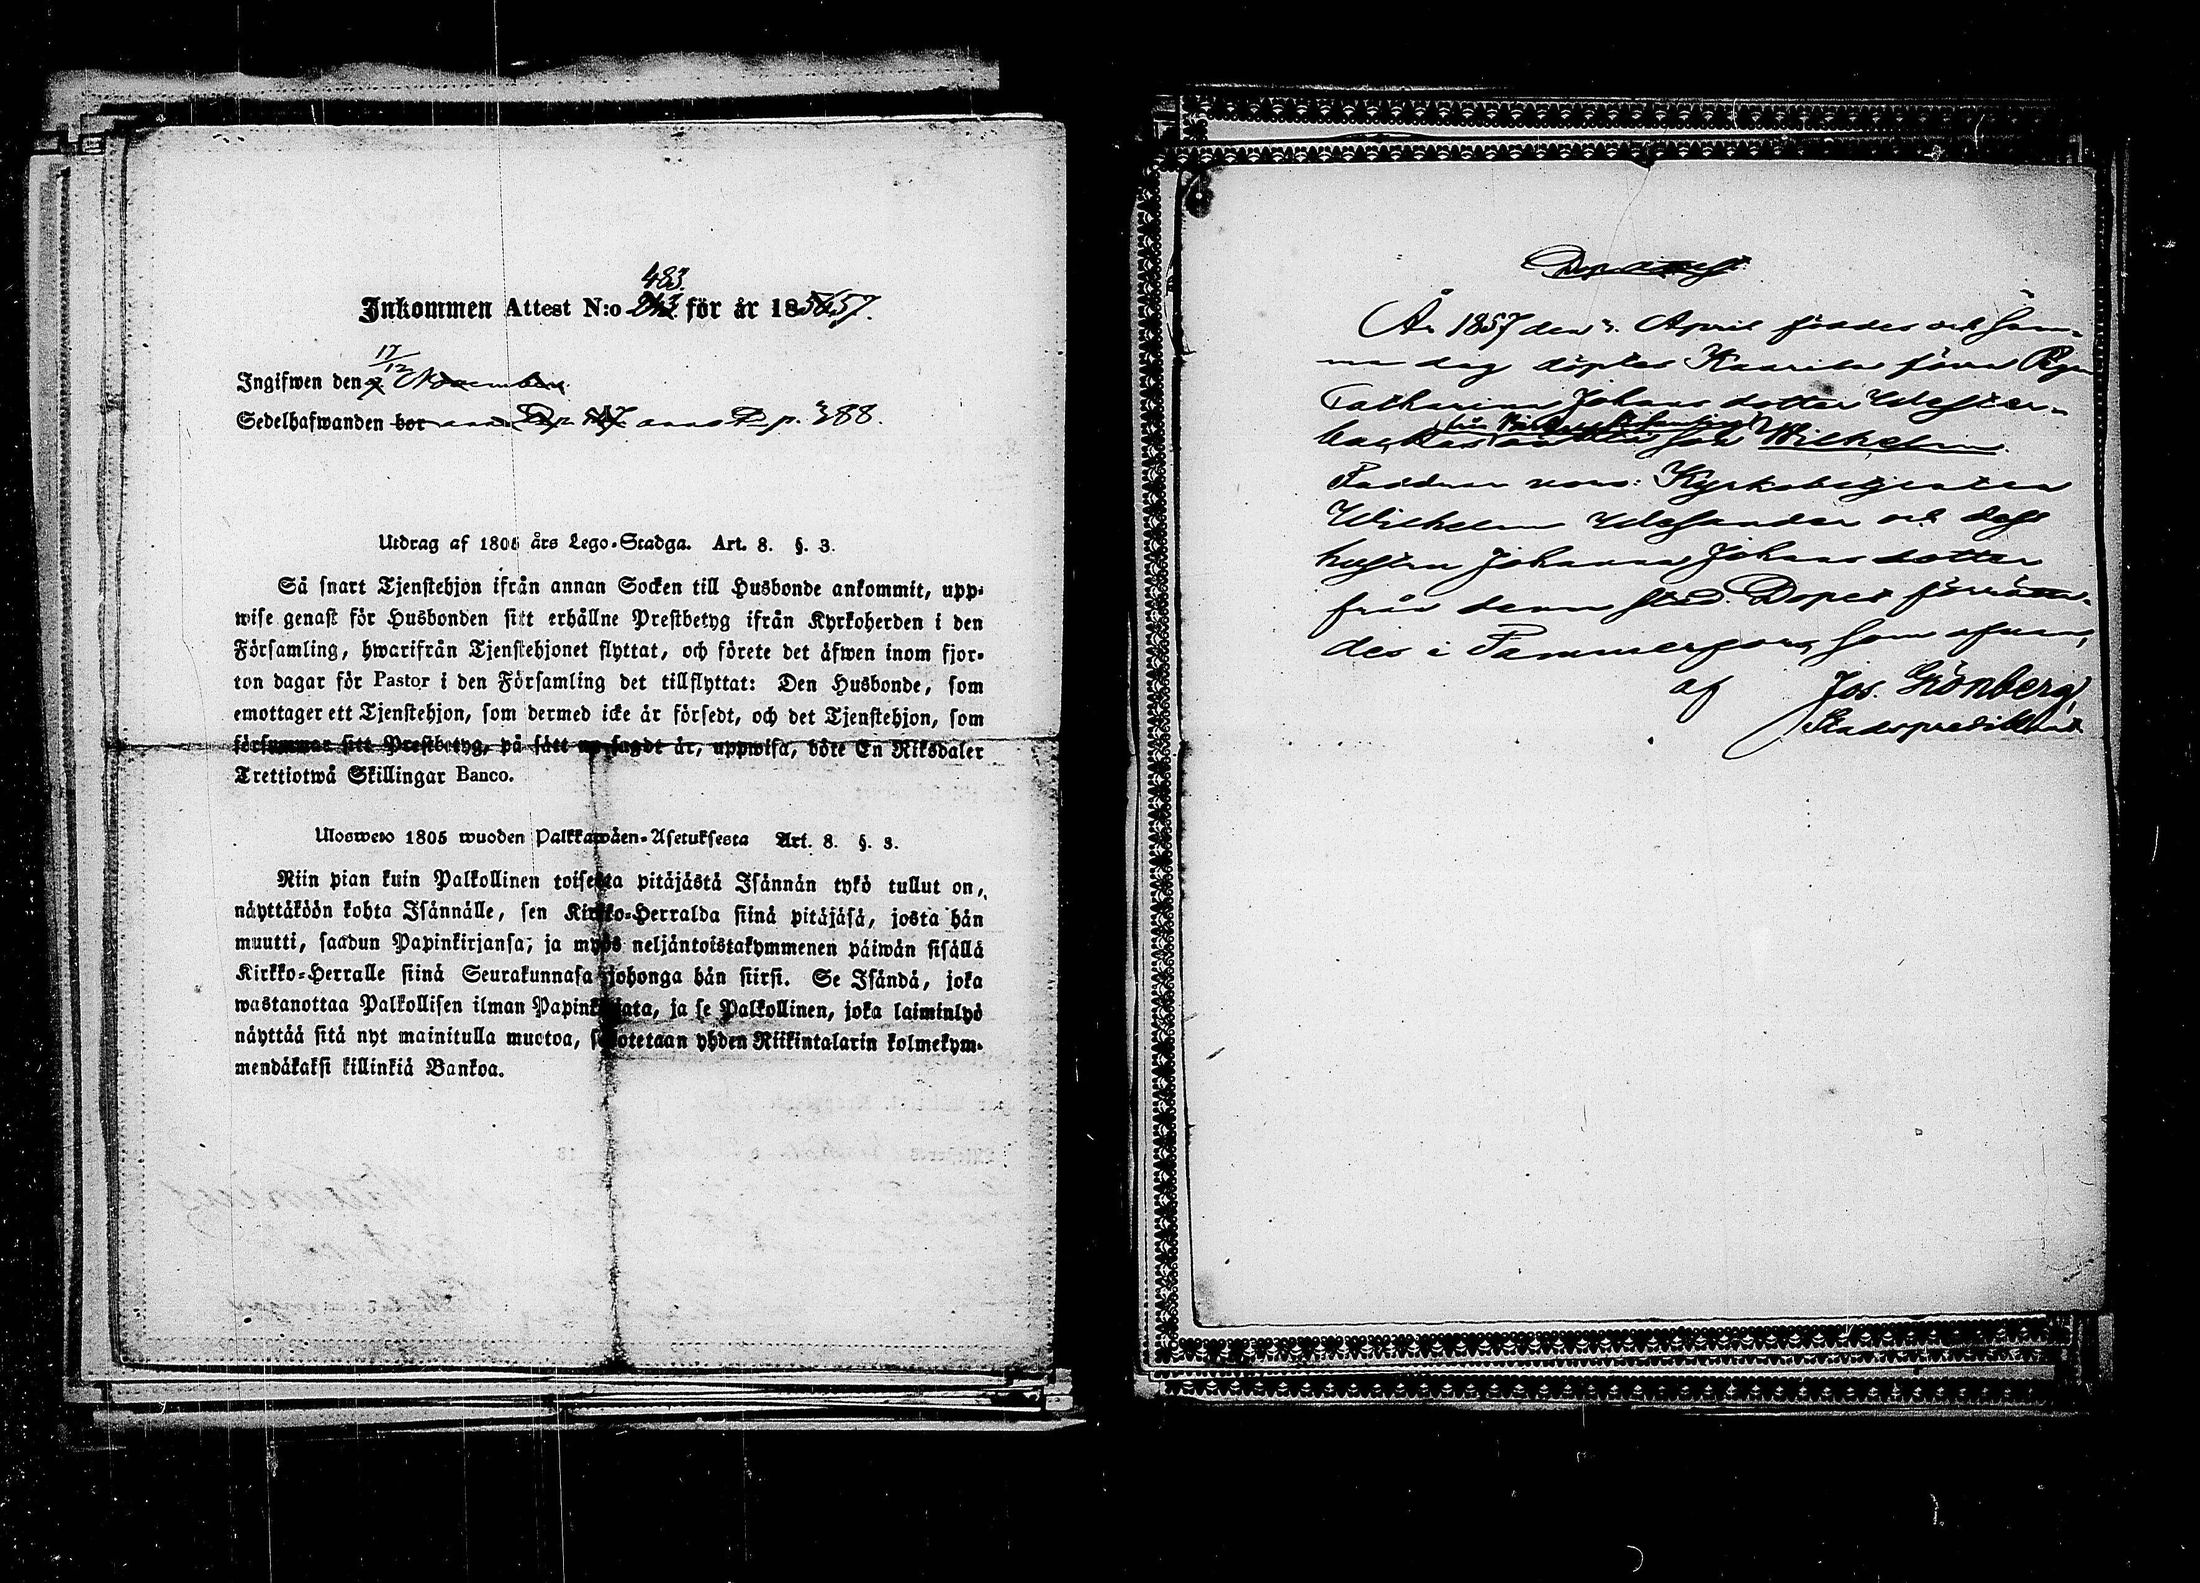 483.
Inkommen Attest N:o 243. för år 185657.
17/12
Ingifwen den November.
Sedelhafwanden bor p. 388.
Utdrag af 1805 års Lego-Stadga. Art. 8. §. 3.
Så snart Tjenstehjon ifrån annan Socken till Husbonde ankommit, upp-
wise genast för Husbonden sitt erhållne Prestbetyg ifrån Kyrkoherden i den
Församling, hwarifrån Tjenstehjonet flyttat, och förete det äfwen inom fjor-
ton dagar för Pastor i den Församling det tillflyttat: Den Husbonde, som
emottager ett Tjenstehjon, som dermed icke är försedt, och det Tjenstehjon, som
försummar sitt Prestbetyg, på sätt nu sagdt är, uppwisa, böte En Riksdaler
Trettiotwå Skillingar Banco.
Uloswето 1805 wuoden Palkkawäen-Asetuksesta Art. 8. §. 3.
Niin pian kuin Palkollinen toisesta pitäjästä Isännän tykö tullut on,
näyttäköön kohta Isännälle, sen Kirkko-Herralda siinä pitäjäsä, josta hän
muutti, saadun Papinkirjansa; ja myös neljäntoistakymmenen päiwän sisällä
Kirkko-Herralle siinä Seurakunnasa johonga hän siirsi. Se Isändä, joka
wastanottaa Palkollisen ilman Papinkirjata, ja se Palkollinen, joka laiminlyö
näyttää sitä nyt mainitulla muotoa, sakotetaan yhden Riikintalarin kolmekym-
mendäkaksi killinkiä Bankoa.
Dopattest
År 1857 den 3. April föddes och sam-
ma dag döptes Kaarila förra Pigan
Catharina Johansdotter Wester-
backas son Wilhelm.
Faddrar woro: Kyrkobetjenten
Wilhelm Welander och dess
hustru Johanna Johansdotter
från denna stad. Dopet förrätta-
des i Tammerfors, som ofvan,
af Jos. Grönberg,
Stadspredikant